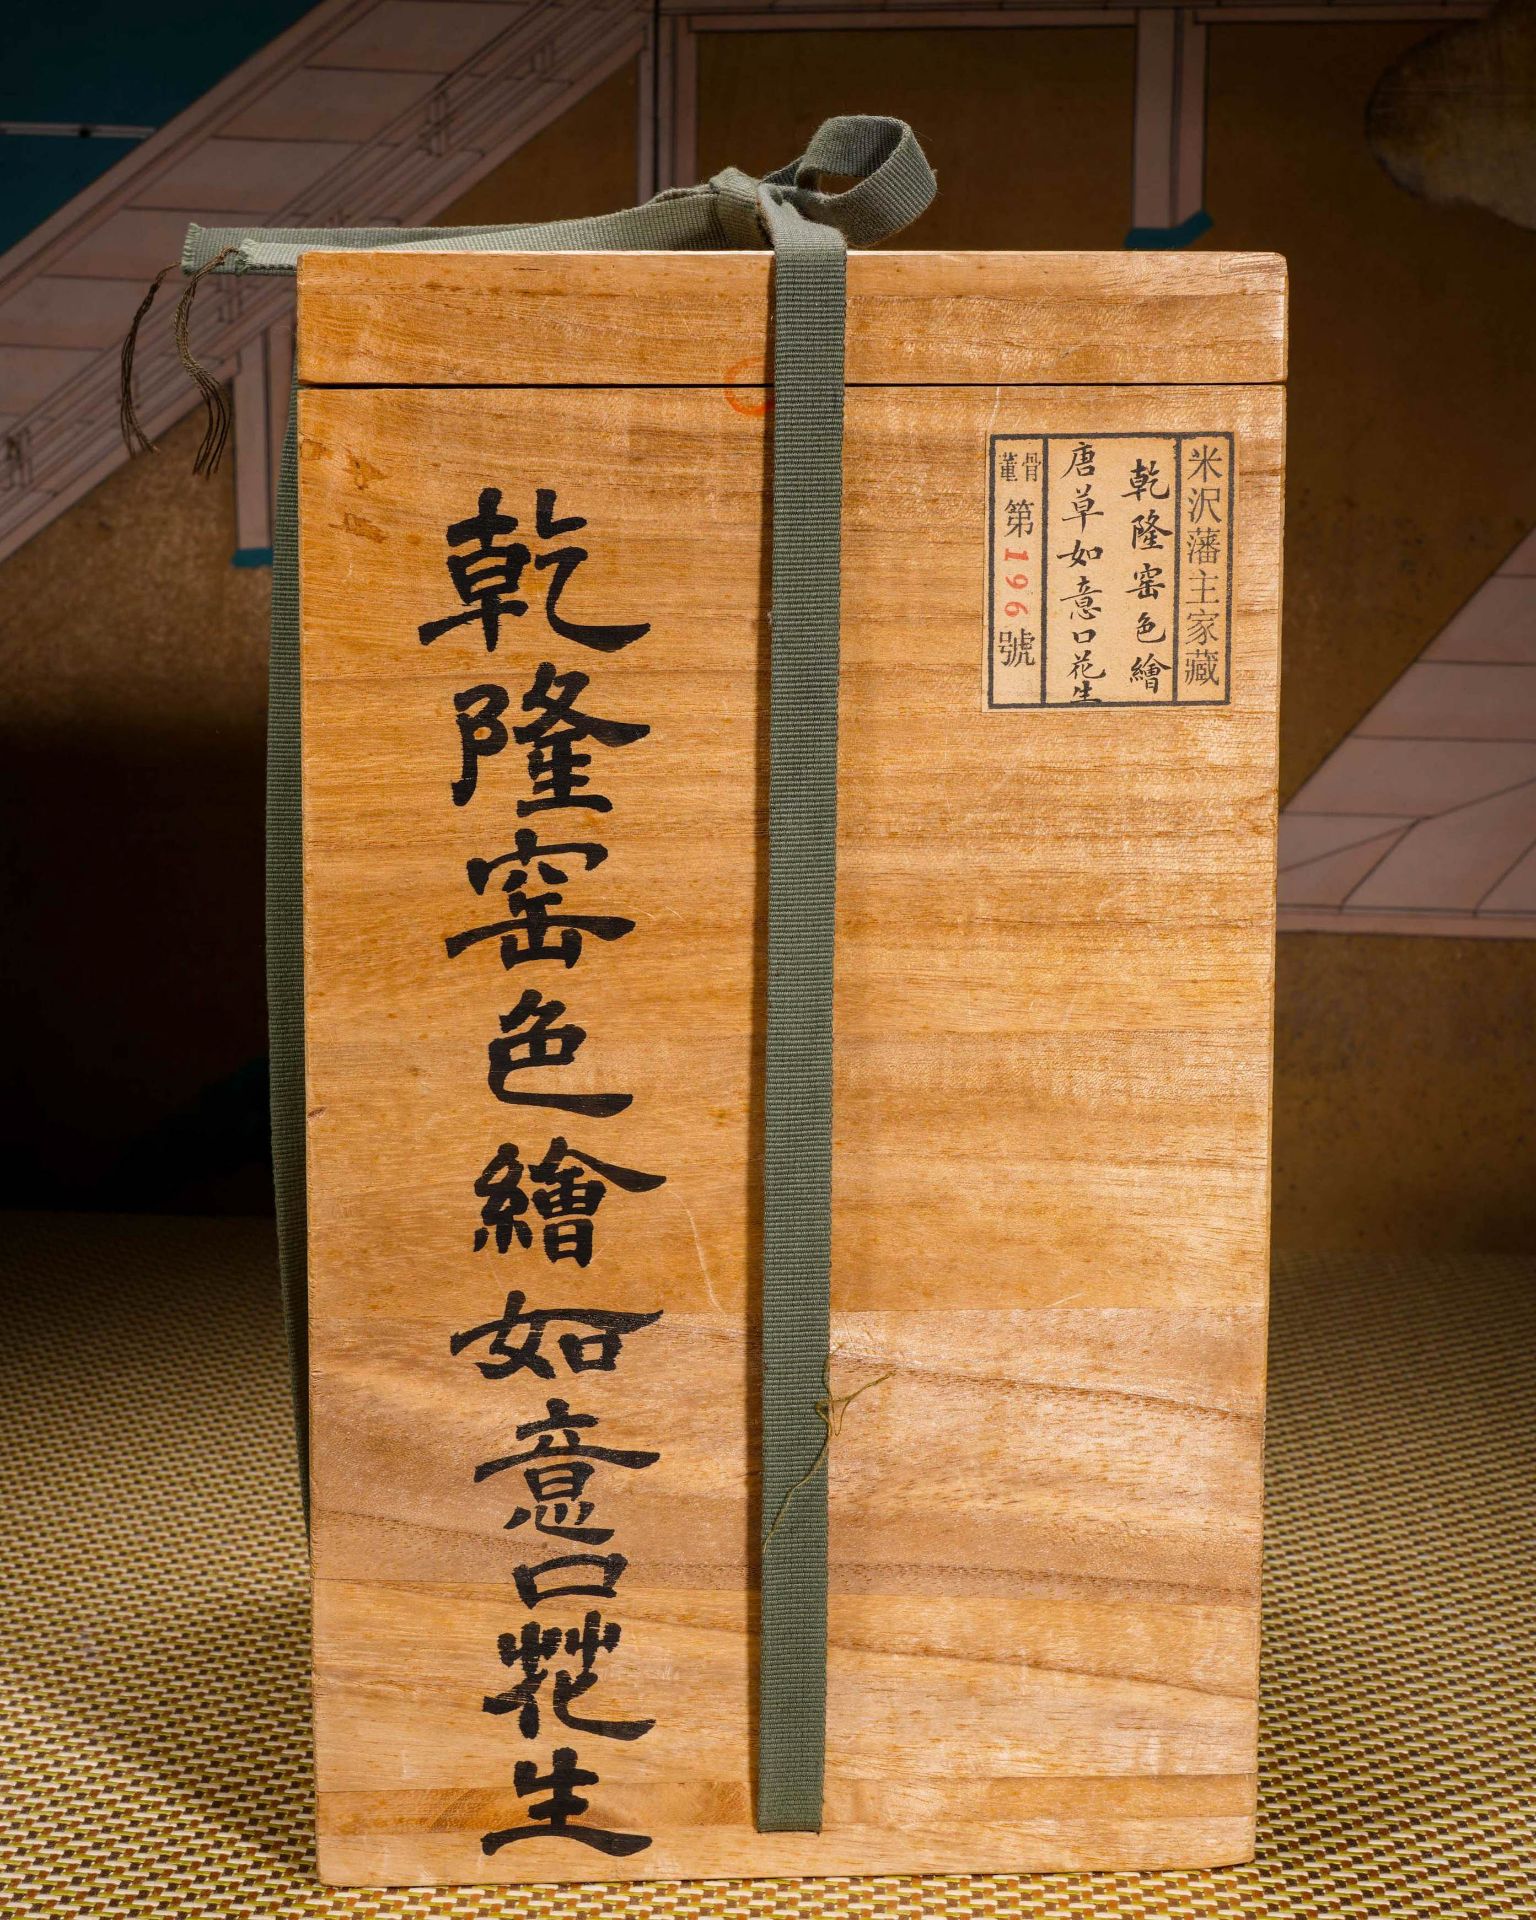 米沢藩主家藏
乾隆窑色繪
唐草如意口花生
骨董
第196號
乾隆窑色繪如意口花生